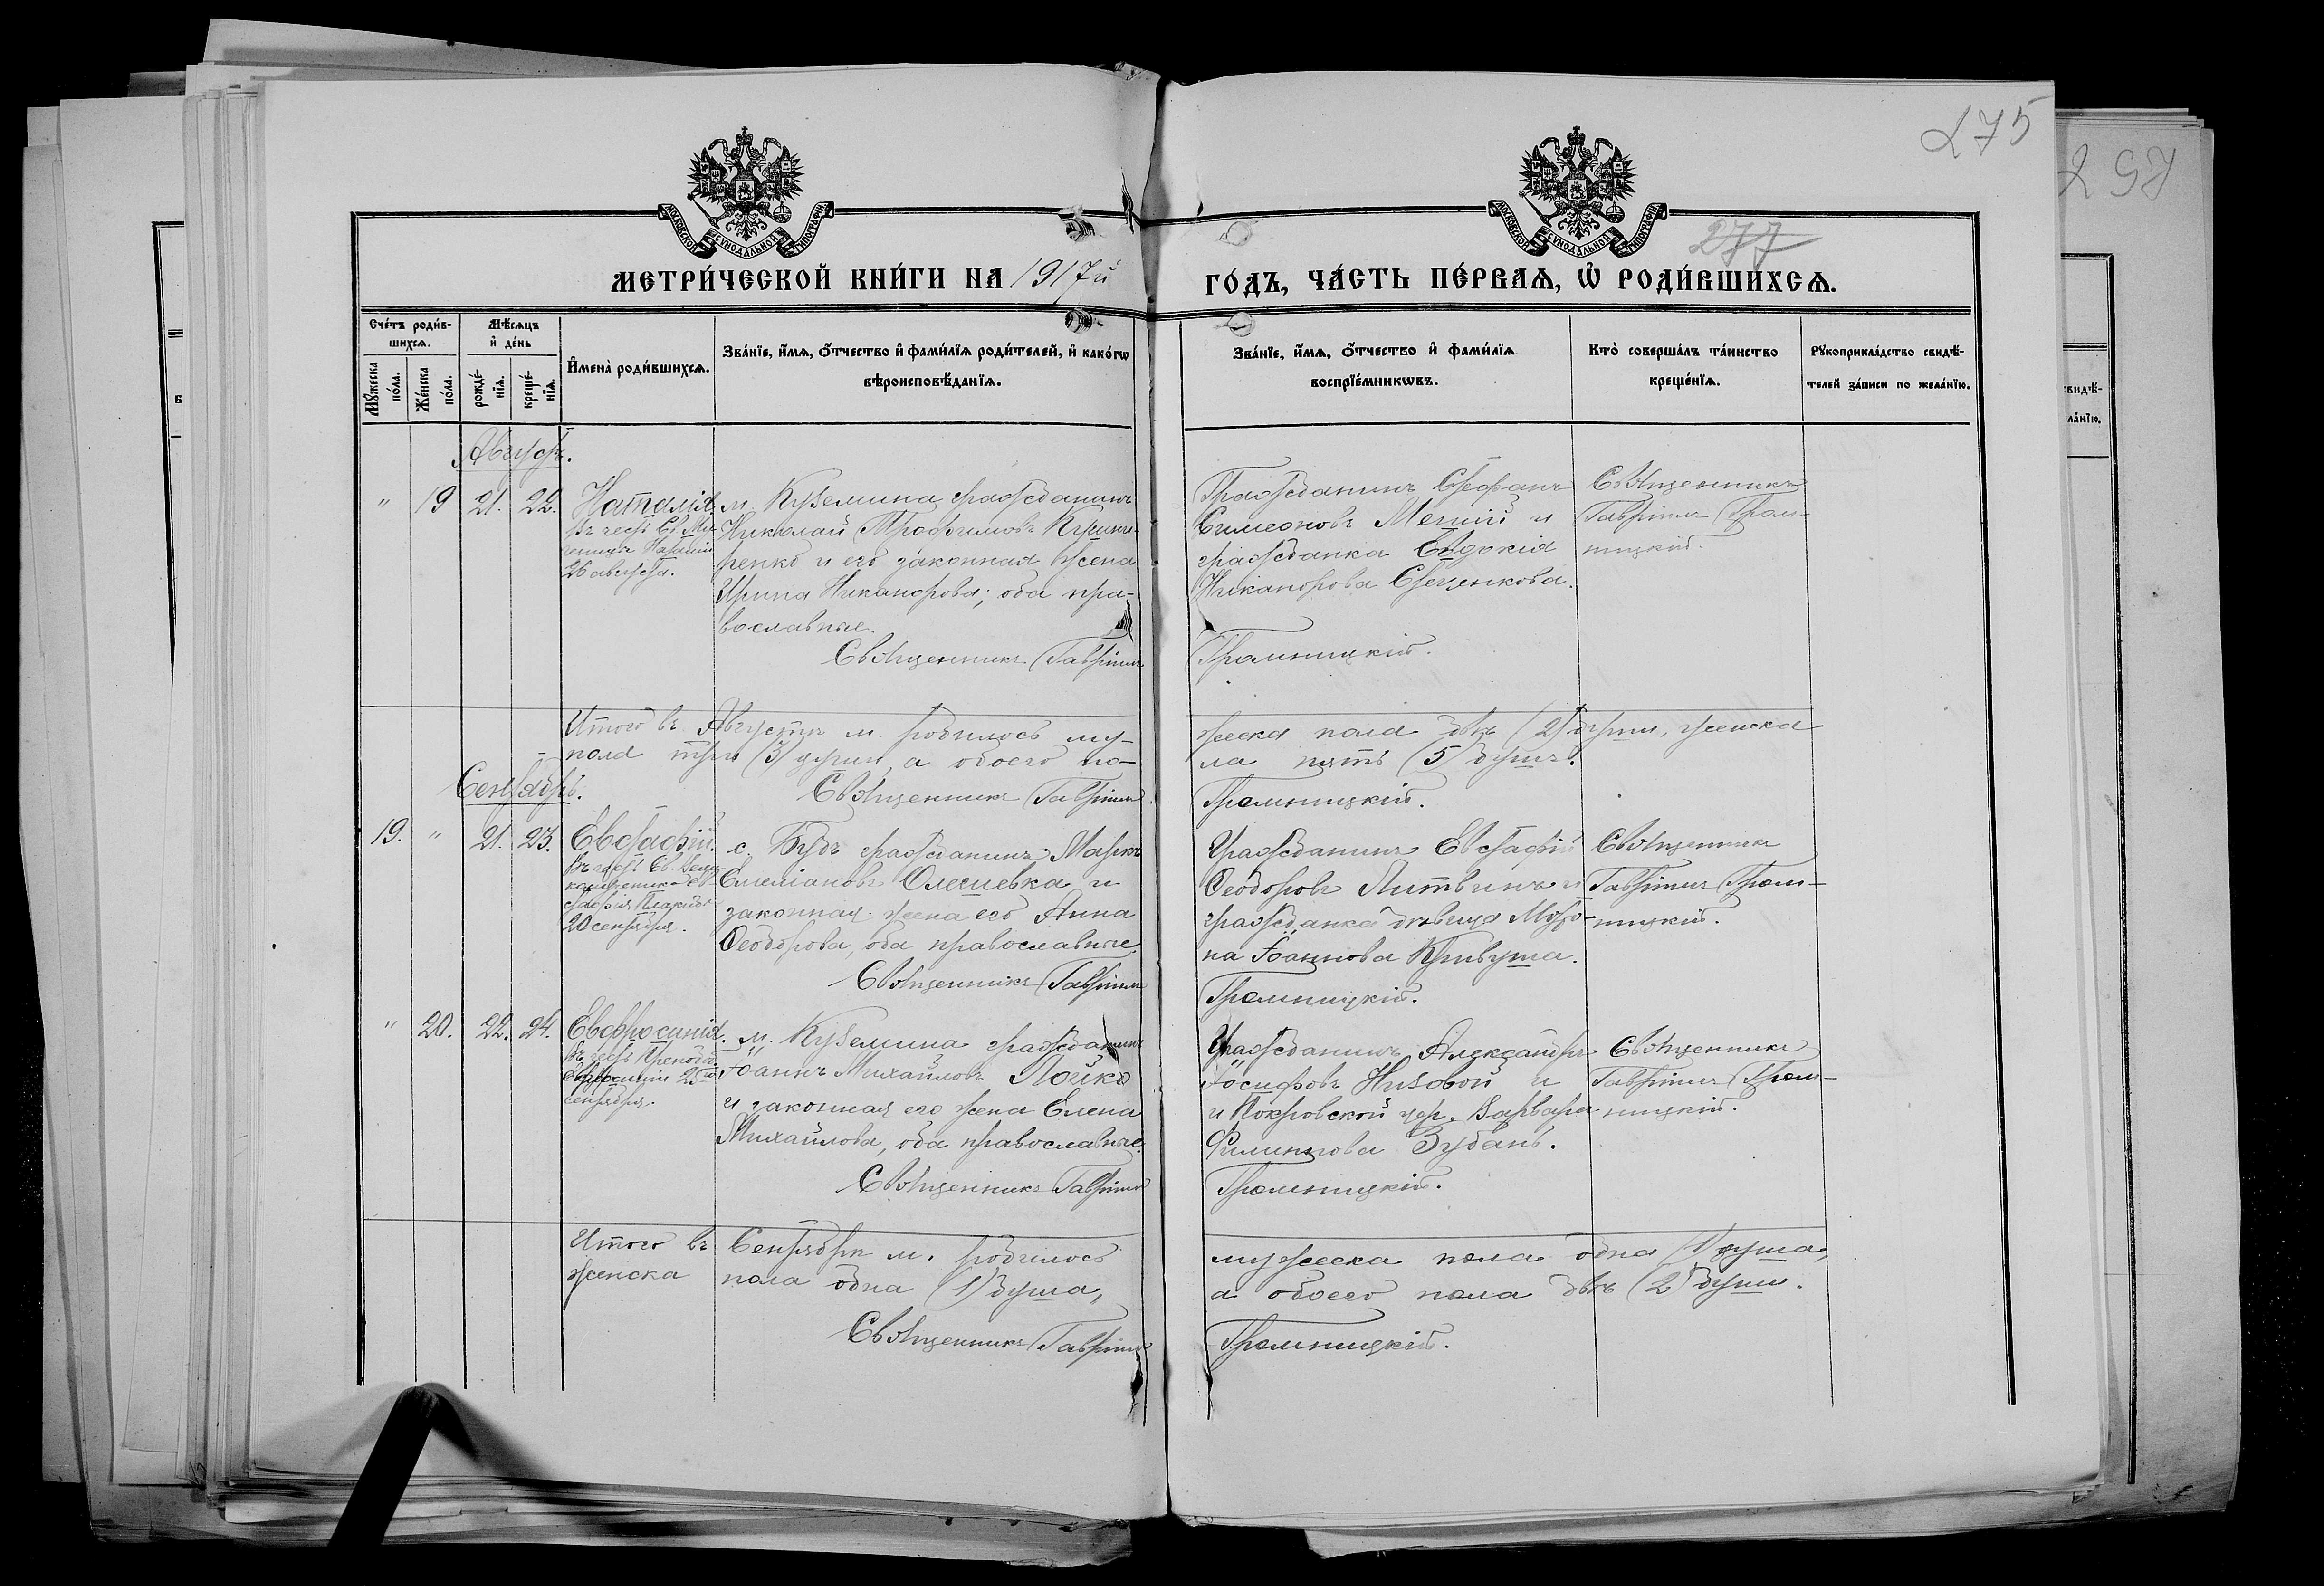 275
257
277
МОСКОВСКОЙ СѴНОДАЛЬНОЙ ТИПОГРАФІИ
МОСКОВСКОЙ СѴНОДАЛЬНОЙ ТИПОГРАФІИ
МЕТРИ́ЧЕСКОЙ КНИ́ГИ НА 1917й
ГО́ДЪ, ЧА́СТЬ ПЕ́РВАѦ, Ѡ҆ РОДИ́ВШИХСѦ.
Сче́тъ роди́в-
шихсѧ.
Мꙋ́жеска по́ла.
Же́нска по́ла.
Мѣ́сѧцъ
и҆ де́нь
рожде́-
нїѧ.
креще́-
нїѧ.
И҆мена̀ роди́вшихсѧ.
Зва́нїе, и҆́мѧ, ѻ҆́тчество и҆ фами́лїѧ роди́телей, и҆ како́гѡ
вѣроисповѣ́данїѧ.
Зва́нїе, и҆́мѧ, ѻ҆́тчество и҆ фами́лїѧ
воспрїе́мникѡвъ.
Кто̀ соверша́лъ та́инство
креще́нїѧ.
Рꙋкоприкла́дство свидѣ́-
телей за́писи по жела́нїю.
Августъ.
" 19 21. 22.
Наталія
Въ честь Св. Му-
ченицы Наталіи
26 августа.
м. Куземина гражданинъ
Николай Трофимовъ
и его законная жена
Ирина Никанорова; оба пра-
вославные.
Священникъ Гавріилъ
Гражданинъ Стефанъ
Симеоновъ и
гражданка Евдокія
Никанорова
Громницкій.
Священникъ
Гавріилъ Гром-
ницкій.
Итого въ Августѣ м. родилось му-
жеска пола двѣ (2) души, женска
пола три (3) души, а обоего по-
ла пять (5) душъ.
Священникъ Гавріилъ
Громницкій.
Сентябрь.
19. " 21. 23.
Евстафій.
Въ честь Св. Вели-
комученика Ев-
стафія Плакиды
20 сентября.
с. Будъ гражданинъ Маркъ
Емеліановъ Олешевка и
законная жена его Анна
Ѳеодорова, оба православные
Священникъ Гавріилъ
Гражданинъ Евстафій
Ѳеодоровъ Литвинъ и
гражданка дѣвица Матро-
на Іоаннова Кривуша.
Громницкій.
Священникъ
Гавріилъ Гром-
ницкій.
" 20. 22. 24.
Евфросинія.
Въ честь Преподоб.
Евфросиніи 25го
сентября.
м. Куземина гражданинъ
Іоаннъ Михайловъ Лойко
и законная его жена Елена
Михайлова, оба православные.
Священникъ Гавріилъ
Гражданинъ Александръ
Іосифовъ Низовой и
и Покровской цер. Варвара
Филиппова Зубань.
Громницкій.
Священникъ
Гавріилъ Гром-
ницкій.
Итого въ Сентябрѣ м. родилось
мужеска пола одна (1) душа,
женска пола одна (1) душа,
а обоего пола двѣ (2) души.
Священникъ Гавріилъ
Громницкій.